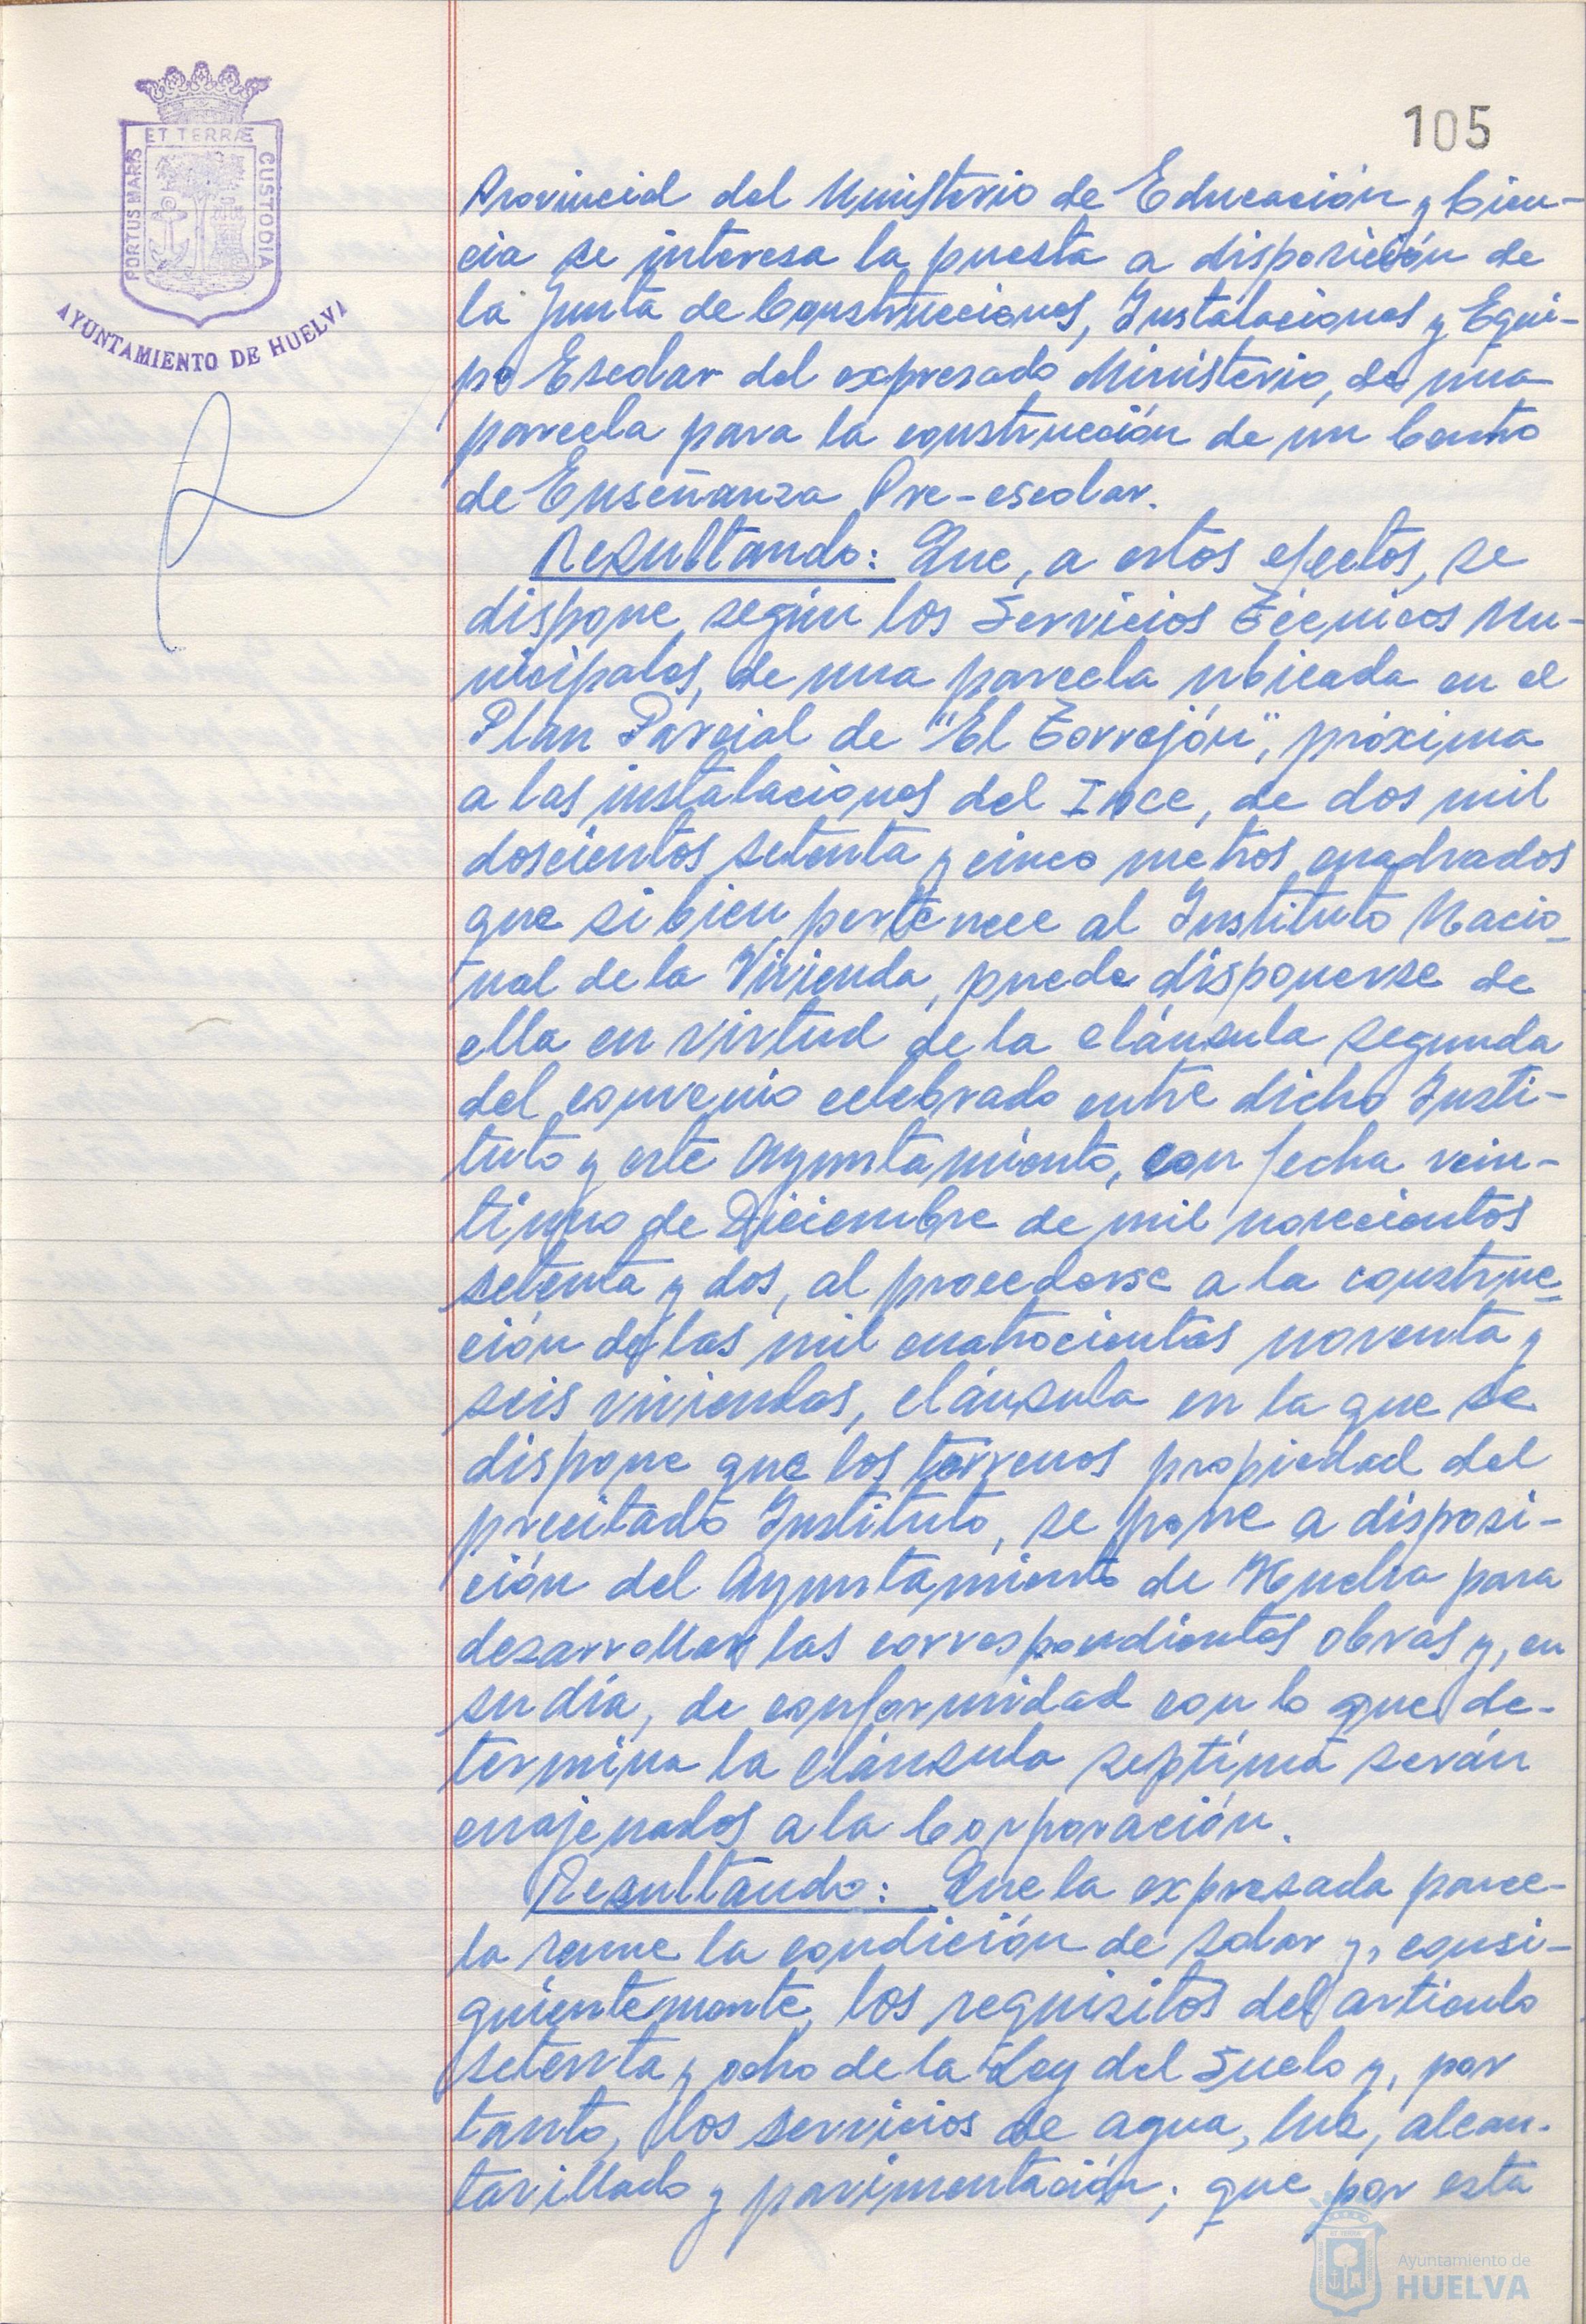 105
ET TERRÆ
PORTUS MARIS
CUSTODIA
AYUNTAMIENTO DE HUELVA
Provincial del Ministerio de Educación y Cien-
cia se interesa la puesta a disposición de
la Junta de Construcciones, Instalaciones y Equi-
po Escolar del expresado Ministerio, de una
parcela para la construcción de un Centro
de Enseñanza Pre-escolar.
Resultando: Que, a estos efectos, se
dispone, según los Servicios Técnicos Mu-
nicipales, de una parcela ubicada en el
Plan Parcial de "El Torrejón", próxima
a las instalaciones del Ince, de dos mil
doscientos setenta y cinco metros cuadrados
que si bien pertenece al Instituto Nacio-
nal de la Vivienda, puede disponerse de
ella en virtud de la cláusula segunda
del convenio celebrado entre dicho Insti-
tuto y este Ayuntamiento, con fecha vein-
tiuno de Diciembre de mil novecientos
setenta y dos, al procederse a la construc-
ción de las mil cuatrocientas noventa y
seis viviendas, cláusula en la que se
dispone que los terrenos propiedad del
precitado Instituto, se pone a disposi-
ción del Ayuntamiento de Huelva para
desarrollar las correspondientes obras y, en
su día, de conformidad con lo que de-
termina la cláusula septima serán
enajenados a la Corporación.
Resultando: Que la expresada parce-
la reune la condición de solar y, consi-
guientemente, los requisitos del articulo
setenta y ocho de la Ley del Suelo y, por
tanto, los servicios de agua, luz, alcan-
tarillado y pavimentación; que por esta
Ayuntamiento de
HUELVA